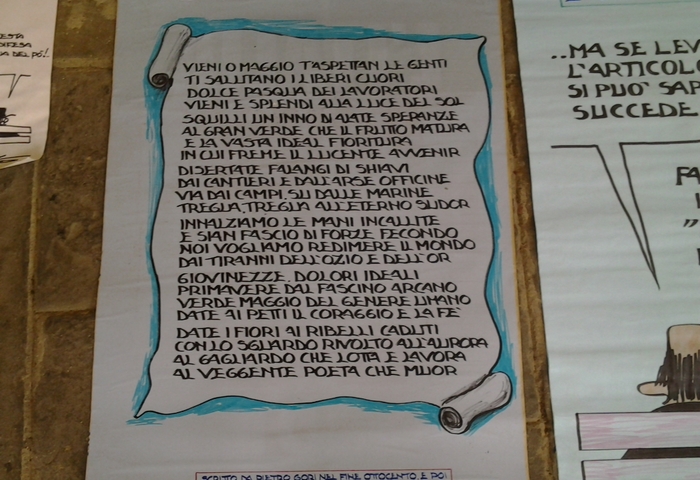 ESTA
DIFESA
DEL PO'!
VIENI O MAGGIO T'ASPETTAN LE GENTI
TI SALUTANO I LIBERI CUORI
DOLCE PASQUA DEI LAVORATORI
VIENI E SPLENDI ALLA LUCE DEL SOL
SQUILLI UN INNO DI ALATE SPERANZE
AL GRAN VERDE CHE IL FRUTTO MATURA
E LA VASTA IDEAL FIORITURA
IN CUI FREME IL LUCENTE AVVENIR
DISERTATE FALANGI DI SHIAVI
DAI CANTIERI E DALL'ARSE OFFICINE
VIA DAI CAMPI, SU DALLE MARINE
TREGUA, TREGUA ALL'ETERNO SUDOR
INNALZIAMO LE MANI INCALLITE
E SIAN FASCIO DI FORZE FECONDO
NOI VOGLIAMO REDIMERE IL MONDO
DAI TIRANNI DELL'OZIO E DELL'OR
GIOVINEZZE, DOLORI IDEALI
PRIMAVERE DAL FASCINO ARCANO
VERDE MAGGIO DEL GENERE UMANO
DATE AI PETTI IL CORAGGIO E LA FE'
DATE I FIORI AI RIBELLI CADUTI
CON LO SGUARDO RIVOLTO ALL'AURORA
AL GAGLIARDO CHE LOTTA E LAVORA
AL VEGGENTE POETA CHE MUOR
SCRITTO DA PIETRO GORI NEL FINE OTTOCENTO E POI
..MA SE LEV
L'ARTICOLO
SI PUO' SAP
SUCCEDE